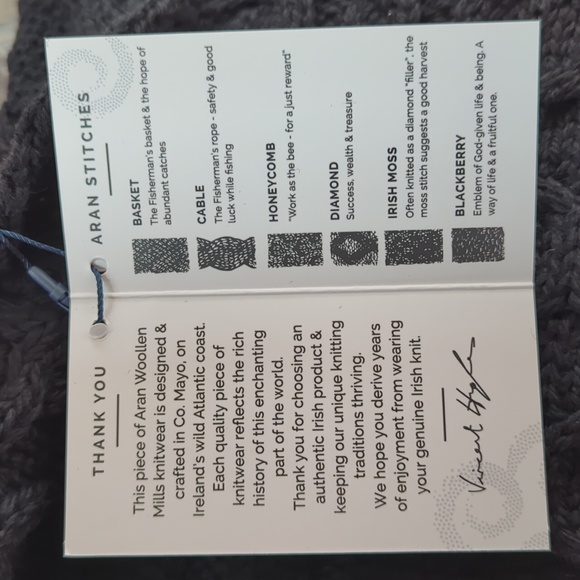 THANK YOU
This piece of Aran Woollen
Mills knitwear is designed &
crafted in Co. Mayo, on
Ireland's wild Atlantic coast.
Each quality piece of
knitwear reflects the rich
history of this enchanting
part of the world.
Thank you for choosing an
authentic Irish product &
keeping our unique knitting
traditions thriving.
We hope you derive years
of enjoyment from wearing
your genuine Irish knit.
ARAN STITCHES
BASKET
The Fisherman's basket & the hope of
abundant catches
CABLE
The Fisherman's rope - safety & good
luck while fishing
HONEYCOMB
"Work as the bee - for a just reward"
DIAMOND
Success, wealth & treasure
IRISH MOSS
Often knitted as a diamond "filler", the
moss stitch suggests a good harvest
BLACKBERRY
Emblem of God-given life & being. A
way of life & a fruitful one.